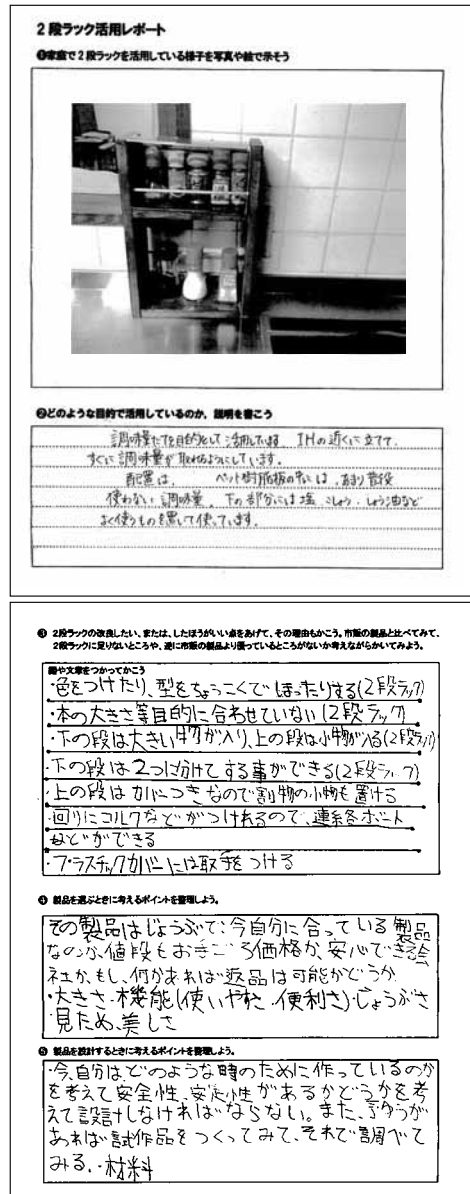 2段ラック活用レポート
❶家庭で2段ラックを活用している様子を写真や絵で示そう
❷どのような目的で活用しているのか,説明を書こう
調味量たてを目的として活用している IHの近くに立てて、
すぐに調味量が取れるようにしています。
配置は、ペット樹脂板の中には、あまり普段
使わない調味量、下の部分には塩、こしょう、しょう油など
よく使うものを置いて使っています。
❸ 2段ラックの改良したい、または、したほうがいい点をあげて、その理由もかこう。市販の製品と比べてみて、
2段ラックに足りないところや、逆に市販の製品より優っているところがないか考えながらかいてみよう。
図や文章をつかってかこう
・色をつけたり、型をちょうこくでほったりする(2段ラック)
・本の大きさ等目的に合わせていない(2段ラック)
・下の段は大きい物が入り、上の段は小物が入る(2段ラック)
・下の段は2つに分けてする事ができる(2段ラック)
・上の段はカバーつきなので割物の小物も置ける
・回りにコルクなどがつけれるので、連絡ボード
などができる
・プラスチックカバーには取手をつける
❹ 製品を選ぶときに考えるポイントを整理しよう。
その製品はじょうぶで、今自分に合っている製品
なのか、値段もおてごろ価格か、安心できる会
社か、もし、何かあれば返品は可能かどうか
・大きさ・機能(使いやすさ、便利さ)じょうぶさ
見ため、美しさ
❺ 製品を設計するときに考えるポイントを整理しよう。
・今、自分は、どのような時のために作っているのか
を考えて安全性、安定性があるかどうかを考
えて設計しなければならない。また、よゆうが
あれば試作品をつくってみて、それで調べて
みる。・材料